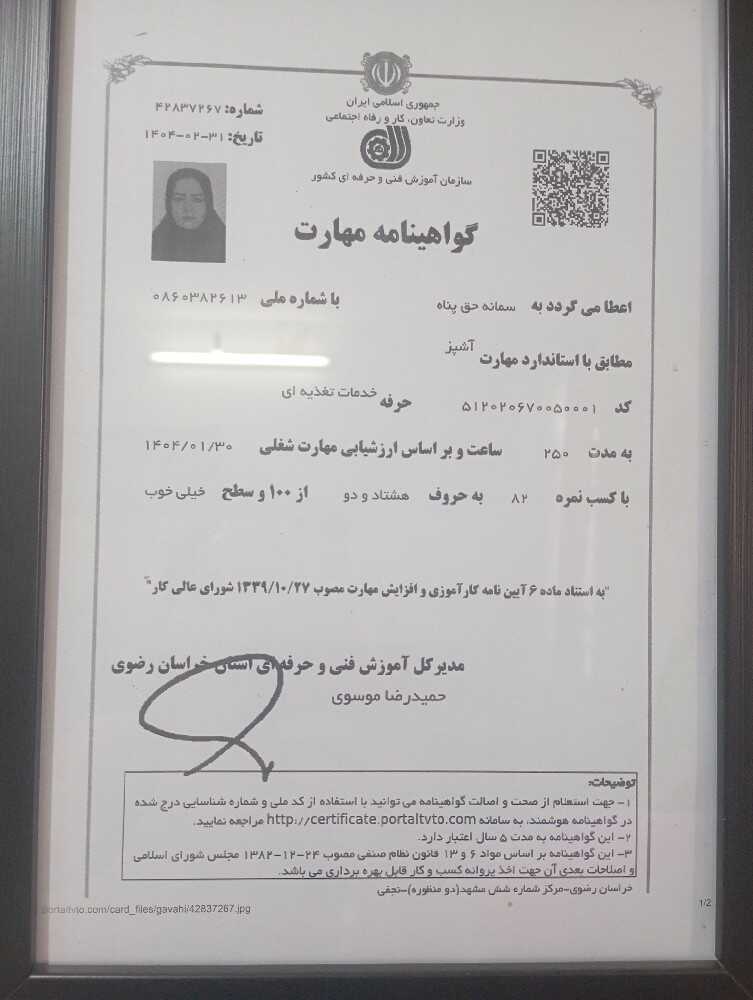 جمهوری اسلامی ایران
وزارت تعاون، کار و رفاه اجتماعی
سازمان آموزش فنی و حرفه ای کشور
شماره: ۴۲۸۳۷۲۶۷
تاریخ: ۱۴۰۴-۰۲-۳۱
گواهینامه مهارت
اعطا می گردد به سمانه حق پناه با شماره ملی ۰۸۶۰۳۸۲۶۱۳
مطابق با استاندارد مهارت آشپز
کد ۵۱۲۰۲۰۶۷۰۰۵۰۰۰۱ حرفه خدمات تغذیه ای
به مدت ۲۵۰ ساعت و بر اساس ارزشیابی مهارت شغلی ۱۴۰۴/۰۱/۳۰
با کسب نمره ۸۲ به حروف هشتاد و دو از ۱۰۰ و سطح خیلی خوب
"به استناد ماده ۶ آیین نامه کارآموزی و افزایش مهارت مصوب ۱۳۳۹/۱۰/۲۷ شورای عالی کار"
مدیرکل آموزش فنی و حرفه ای استان خراسان رضوی
حمیدرضا موسوی
توضیحات:
۱- جهت استعلام از صحت و اصالت گواهینامه می توانید با استفاده از کد ملی و شماره شناسایی درج شده
در گواهینامه هوشمند، به سامانه http://certificate.portaltvto.com مراجعه نمایید.
۲- این گواهینامه به مدت ۵ سال اعتبار دارد.
۳- این گواهینامه بر اساس مواد ۶ و ۱۳ قانون نظام صنفی مصوب ۲۴-۱۲-۱۳۸۲ مجلس شورای اسلامی
و اصلاحات بعدی آن جهت اخذ پروانه کسب و کار قابل بهره برداری می باشد.
خراسان رضوی-مرکز شماره شش مشهد(دو منظوره)-نجفی
portaltvto.com/card_files/gavahi/42837267.jpg
1/2